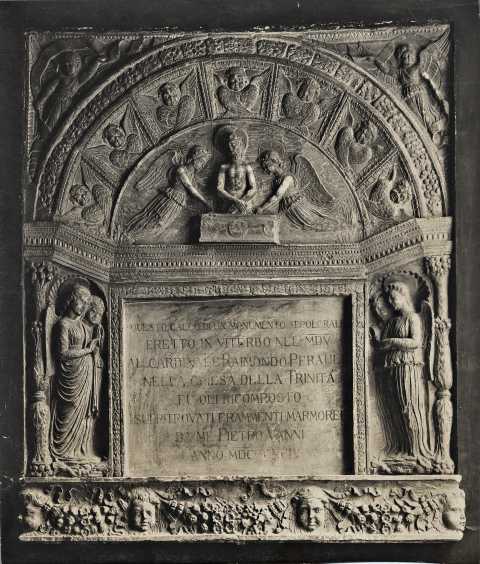 QUESTO CALCO DI UN MONUMENTO SEPOLCRALE
ERETTO IN VITERBO NEL MDV
AL CARDINALE RAIMONDO PERAULT
NELLA CHIESA DELLA TRINITÀ
FU QUI RICOMPOSTO
SUI RITROVATI FRAMMENTI MARMOREI
DA ME PIETRO VANNI
ANNO